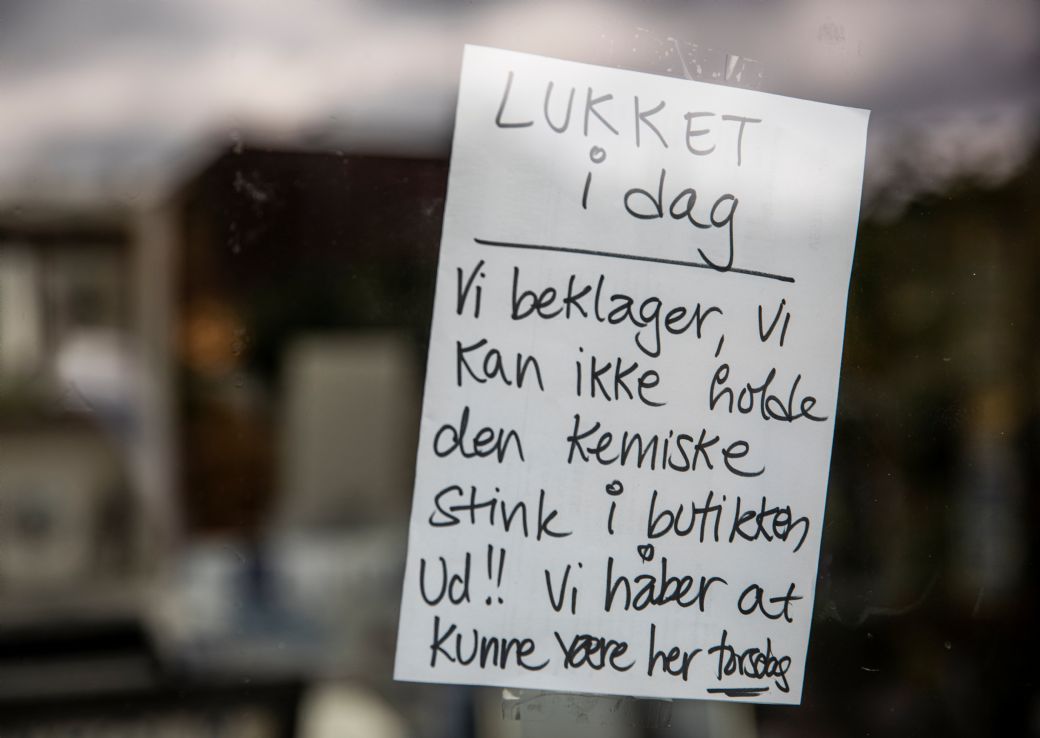 LUKKET
i dag
Vi beklager, vi
kan ikke holde
den kemiske
stink i butikken
ud!! Vi håber at
kunne være her torsdag